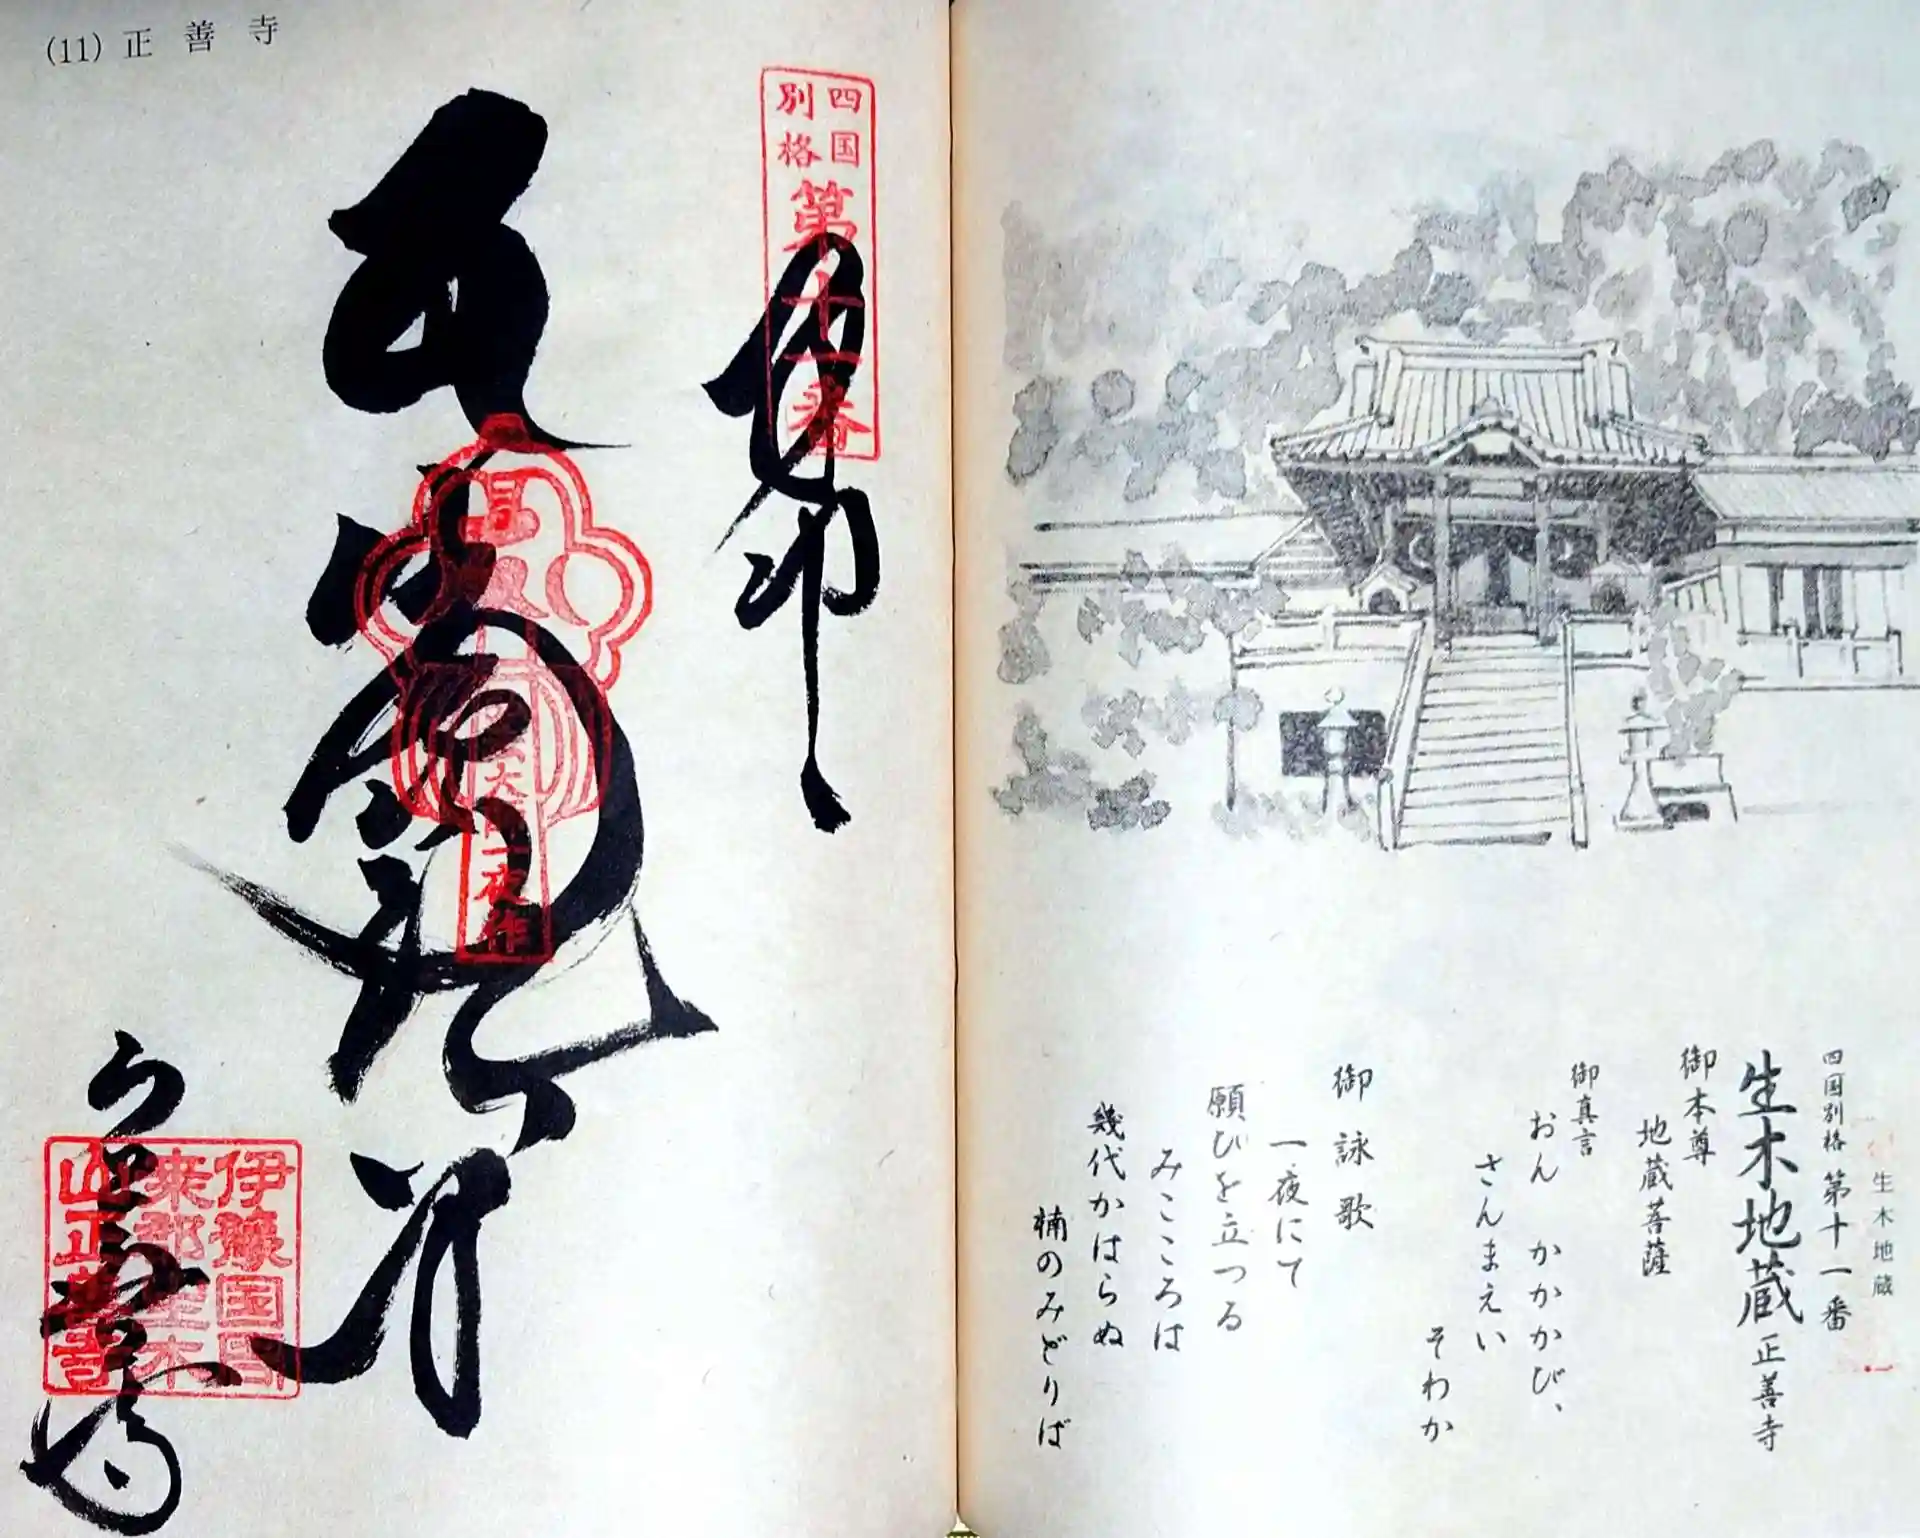 (11) 正善寺
四国
別格
第十一番
奉納
大師一夜作
伊豫国周
桑郡生木
山正善寺
生木地蔵
四国別格 第十一番
生木地蔵 正善寺
御本尊
地蔵菩薩
御真言
おん かかかび、
さんまえい
そわか
御詠歌
一夜にて
願びを立つる
みこころは
幾代かはらぬ
楠のみどりば